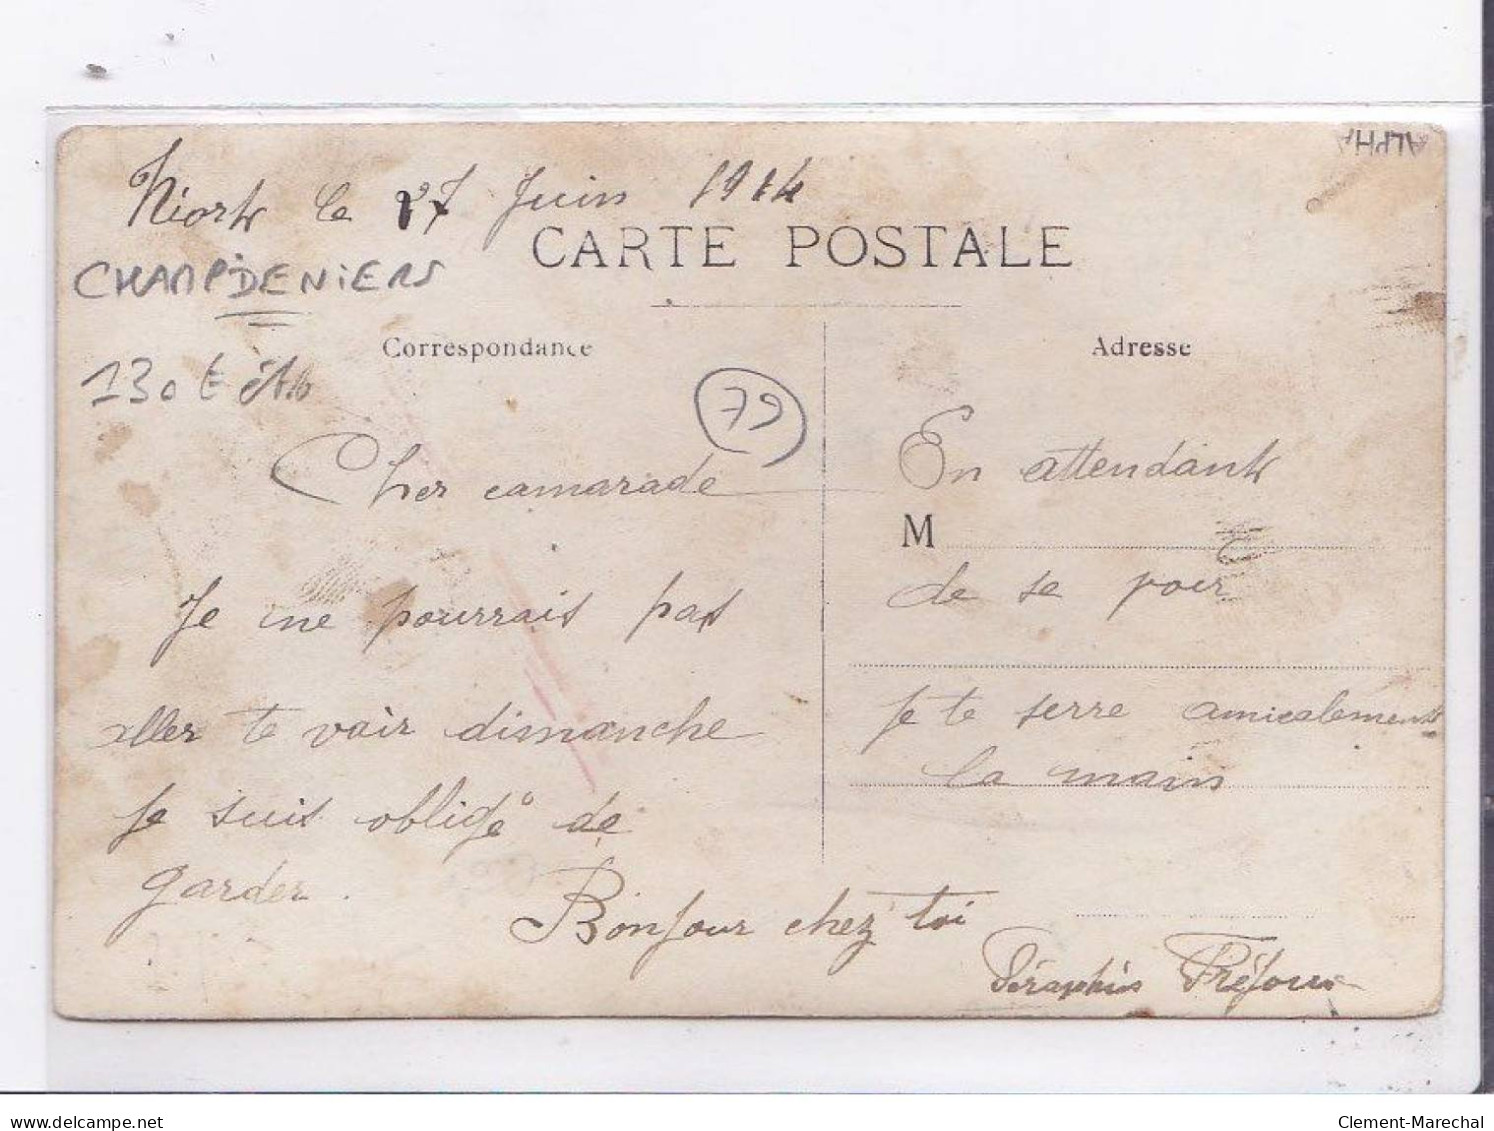 ALPHA
Niort le 27 Juin 1914
CARTE POSTALE
CHAMPDENIERS
Correspondance
Adresse
130 t
79
Cher camarade
Je me pourrais pas
aller te voir dimanche
Je suis obligé de
garder.
Bonjour chez toi
En attendant
M
de se voir
Je te serre amicalement
la main
Séraphin Fréjoux
delcampe.net
Clement-Marechal